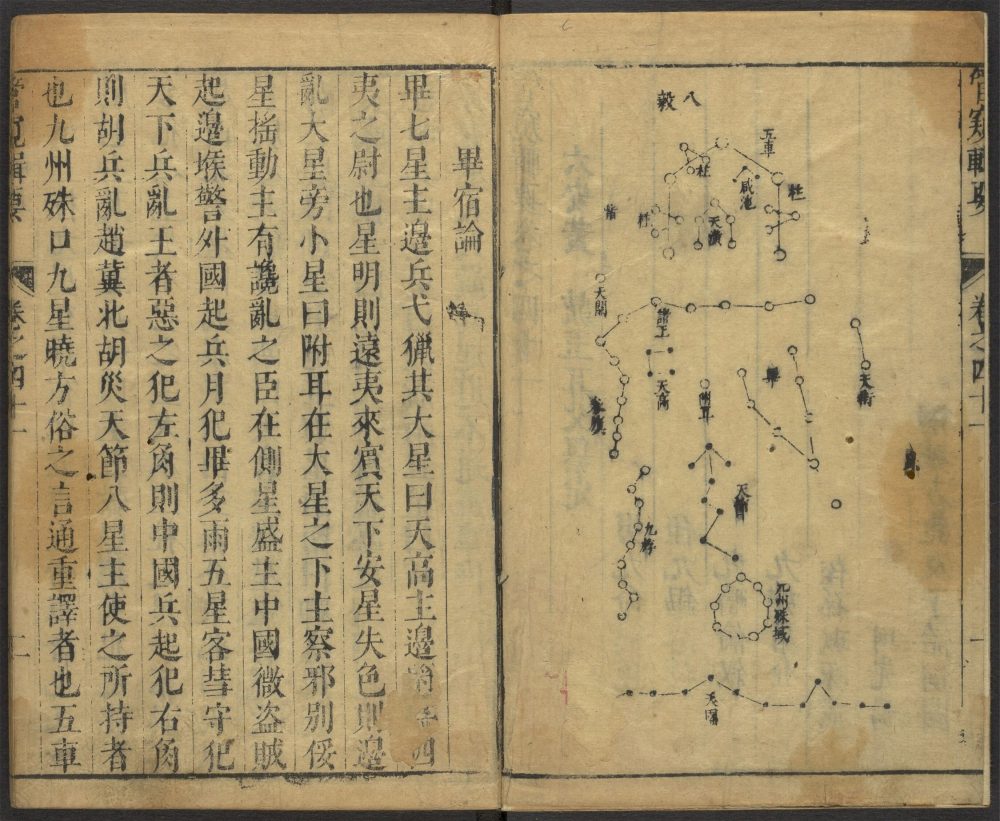 管窺輯要
卷之四十一
一
八穀
五車
柱
咸池
柱
天潢
柱
觜
天關
諸王
天高
天街
畢
附耳
參旗
天節
九斿
九州殊域
天園
畢宿論
畢七星主邊兵弋獵其大星曰天高主邊將四
夷之尉也星明則遠夷來賓天下安星失色則邊
亂大星旁小星曰附耳在大星之下主察邪別佞
星搖動主有讒亂之臣在側星盛主中國微盜賊
起邊堠警外國起兵月犯畢多雨五星客彗守犯
天下兵亂王者惡之犯左角則中國兵起犯右角
則胡兵亂趙冀北胡災天節八星主使之所持者
也九州殊口九星曉方俗之言通重譯者也五車
管窺輯要
卷之四十一
二